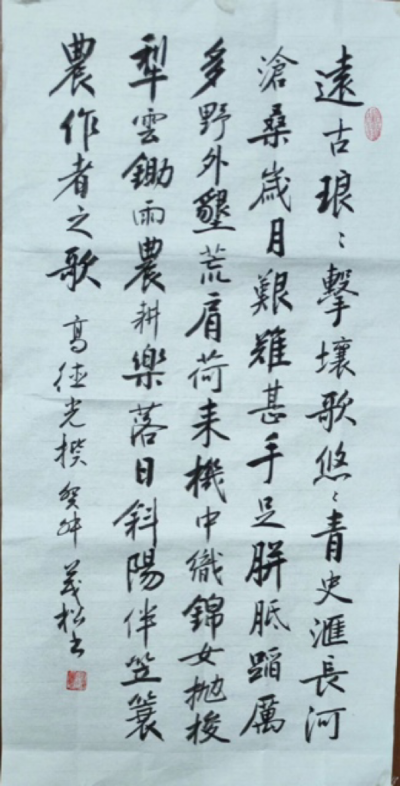 遠古琅〻擊壤歌悠〻青史滙長河
滄桑歲月艱難甚手足胼胝蹈厲
多野外墾荒肩荷耒機中織錦女抛梭
犁雲鋤雨農耕樂落日斜陽伴笠簑
農作者之歌 高德光撰 癸卯 茂松書